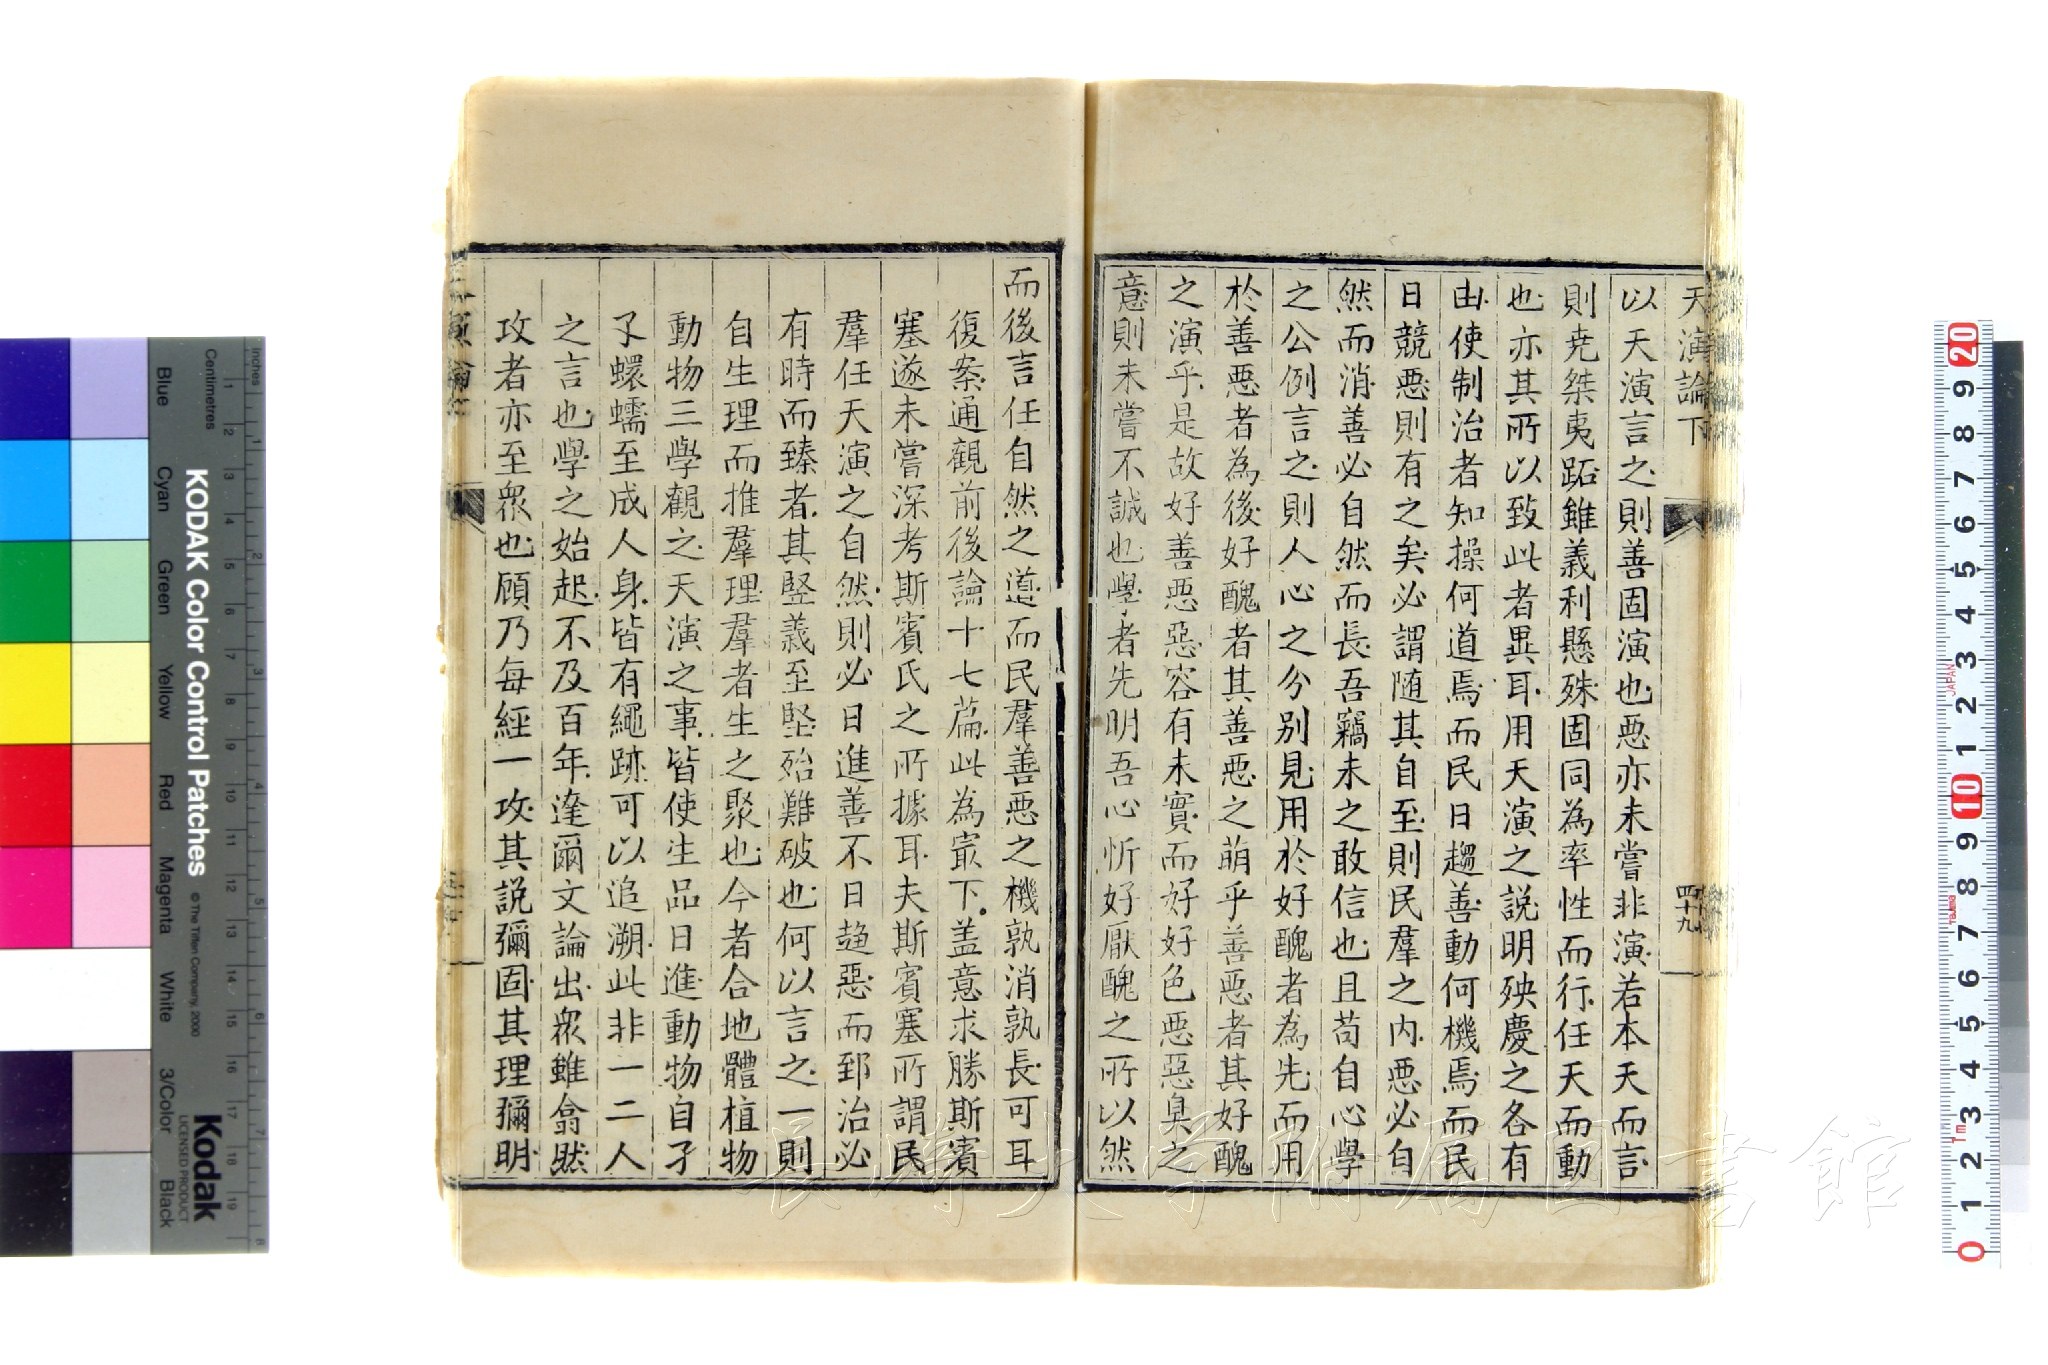 天演論下
四十九
以天演言之則善固演也惡亦未嘗非演若本天而言
則尭桀夷跖雖義利懸殊固同為率性而行任天而動
也亦其所以致此者異耳用天演之說明殃慶之各有
由使制治者知操何道焉而民日趨善動何機焉而民
日競惡則有之矣必謂随其自至則民羣之内惡必自
然而消善必自然而長吾竊未之敢信也且苟自心學
之公例言之則人心之分別見用於好醜者為先而用
於善惡者為後好醜者其善惡之萌乎善惡者其好醜
之演乎是故好善惡惡容有未實而好好色惡惡臭之
意則未嘗不誠也學者先明吾心忻好厭醜之所以然
而後言任自然之道而民羣善惡之機孰消孰長可耳
復案通觀前後論十七篇此為最下盖意求勝斯賓
塞遂未嘗深考斯賓氏之所據耳夫斯賓塞所謂民
羣任天演之自然則必日進善不日趋惡而郅治必
有時而臻者其竪義至堅殆難破也何以言之一則
自生理而推羣理羣者生之聚也今者合地體植物
動物三學觀之天演之事皆使生品日進動物自孑
孓蠉蠕至成人身皆有繩跡可以追溯此非一二人
之言也學之始起不及百年達爾文論出衆雖翕然
攻者亦至衆也顧乃每經一攻其説彌固其理彌明
KODAK Color Control Patches
© The Tiffen Company, 2000
Kodak
LICENSED PRODUCT
Blue
Cyan
Green
Yellow
Red
Magenta
White
3/Color
Black
inches
Centimetres
JAPAN
長崎大学附属図書館